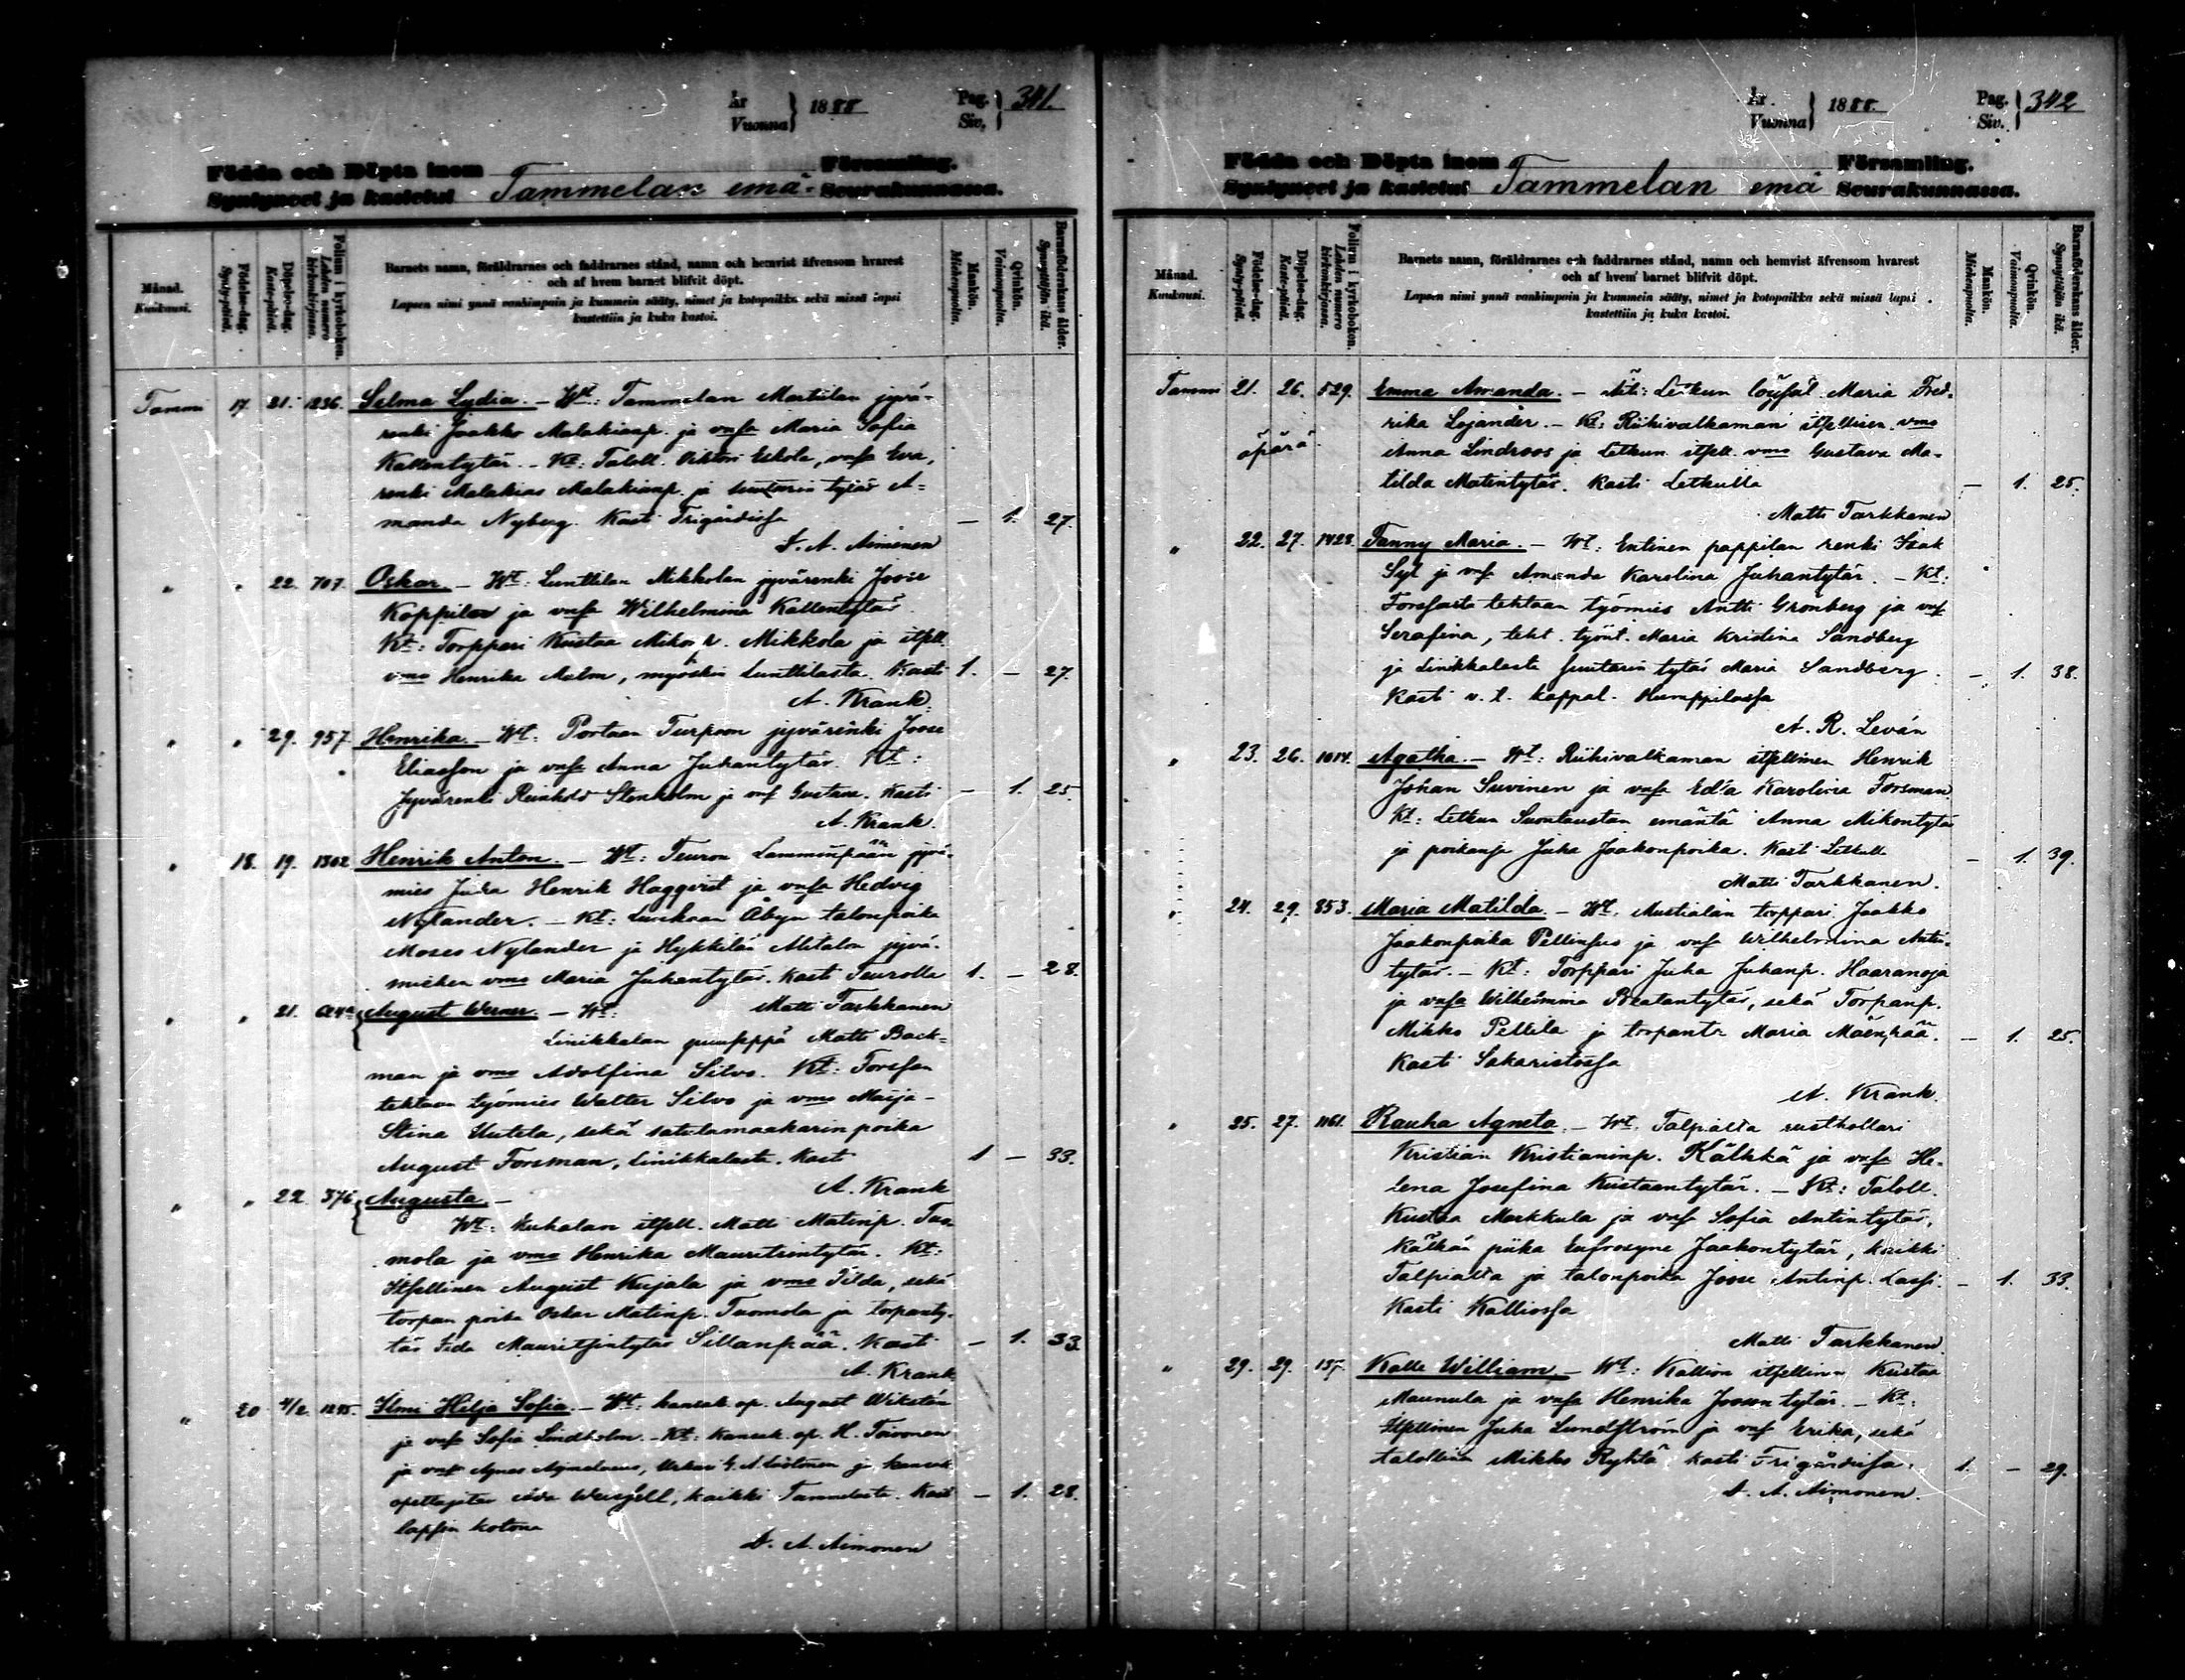 År
Vuonna } 1888
Pag.
Siv. } 341.
Födda och Döpta inom Församling.
Syntyneet ja kastetut Tammelan emä- Seurakunnassa.
Månad.
Kuukausi.
Födelse-dag.
Synty-päivä.
Döpelse-dag.
Kaste-päivä.
Folium i kyrkoboken.
Lehden numero kirkonkirjassa.
Barnets namn, föräldrarnes och faddrarnes stånd, namn och hemvist äfvensom hvarest
och af hvem barnet blifvit döpt.
Lapsen nimi ynnä vanhimpain ja kummein sääty, nimet ja kotopaikka sekä missä lapsi
kastettiin ja kuka kastoi.
Mankön.
Miehenpuolta.
Qvinkön.
Vaimonpuolta.
Barnaföderskans ålder.
Synnyttäjän ikä.
Tammi 17. 21. 1236. Selma Lydia. – Wt: Tammelan Mattilan jyvä-
renki Jaakko Malakianp. ja vmsa Maria Sofia
Kallentytär. – Kt: Taloll. Viktori Eskola, vmsa Eva,
renki Malakias Malakianp. ja suutarin tytär A-
manda Nyberg. Kasti Frigårdissa – 1. 27.
D. A. Aimonen
" " 22. 707. Oskar. – Wt: Lunttilan Mikkolan jyvärenki Joose
Koppilov ja vmsa Wilhelmina Kallentytär.
Kt: Torppari Kustaa Mikonp. Mikkola ja itsell.
vmo Henrika Malm, myöskin Lunttilasta. Kasti 1. – 27.
A. Krank.
" " 29. 957. Henrika. – Wt: Portaan Turpoon jyvärenki Joose
Eliasson ja vmsa Anna Juhantytär. Kt:
Jyvärenki Reinhold Stenholm ja vms Gustava. Kasti – 1. 25.
A. Krank.
" 18. 19. 1302. Henrik Anton. – Wt: Teuron Lamminpään jyvä-
mies Juha Henrik Haggvist ja vmsa Hedvig
Nylander. – Kt: Åbyn talonpoika
Moses Nylander ja Hykkilän Alitalon jyvä-
miehen vmo Maria Juhantytär. Kasti Teurolla 1. – 28.
Matti Tarkkanen
" " 21. August Werner. – Wt:
Linikkalan Matti Back-
man ja vmo Adolfina Silvo. Kt: Forssan
tehtaan työmies Walter Silvo ja vmo Maija-
Stina Uutela, sekä satulamaakarin poika
August Forsman, Linikkalasta. Kasti 1 – 33.
A. Krank
" " 22. 376. Augusta –
Wt: Kuhalan itsell. Matti Matinp. Tuo-
mola ja vmo Henrika Mauritsintytär. Kt:
Itsellinen August Kujala ja vmo Tilda, sekä
torpan poika Oskar Matinp. Tuomola ja torpanty-
tär Fida Mauritsintytär Sillanpää. Kasti – 1. 33.
A. Krank
" 20 4/2. 1245. Ilmi Hilja Sofia. – Wt: kansak. op. August Wikstén
ja vmsa Sofia Lindholm. – Kt: Kansak. op. H. Toivonen
ja vms Agnes, G. A. ja kansak.
opettajatar Ada, kaikki Tammelasta. Kasti – 1. 28.
lapsen kotona
D. A. Aimonen
År
Vuonna } 1888
Pag.
Siv. } 342
Födda och Döpta inom Församling.
Syntyneet ja kastetut Tammelan emä Seurakunnassa.
Månad.
Kuukausi.
Födelse-dag.
Synty-päivä.
Döpelse-dag.
Kaste-päivä.
Folium i kyrkoboken.
Lehden numero kirkonkirjassa.
Barnets namn, föräldrarnes och faddrarnes stånd, namn och hemvist äfvensom hvarest
och af hvem barnet blifvit döpt.
Lapsen nimi ynnä vanhimpain ja kummein sääty, nimet ja kotopaikka sekä missä lapsi
kastettiin ja kuka kastoi.
Mankön.
Miehenpuolta.
Qvinkön.
Vaimonpuolta.
Barnaföderskans ålder.
Synnyttäjän ikä.
Tammi 21. 26. 529. Emma Amanda. – Äiti: Letkun Maria Fred-
rika Lojander. – Kt: Riihivalkaman itsellisen vmo
äpärä Anna Lindroos ja Letkun itsell. vmo Gustava Ma-
tilda Matintytär. Kasti Letkulla – 1. 25.
Matti Tarkkanen
" 22. 27. 1423. Fanny Maria. – Wt: Entinen pappilan renki Isak
Syl ja vms Amanda Karolina Juhantytär. – Kt:
Forssasta tehtaan työmies Antti Grönberg ja vms
Serafina, teht. työnt. Maria Kristina Sandberg
ja Linikkalasta suutarin tytär Maria Sandberg. – 1. 38.
Kasti v. t. kappal. Humppilassa
A. R. Levän
" 23. 26. 1014. Agatha. – Wt: Riihivalkaman itsellinen Henrik
Johan Suvinen ja vmsa Eda Karolina Forsman.
Kt: Letkun Suontaustan emäntä Anna Mikontytär
ja poikansa Juha Jaakonpoika. Kasti Letkulla – 1. 39.
Matti Tarkkanen.
" 24. 29. 853. Maria Matilda. – Wt: Mustialan torppari Jaakko
Jaakonpoika Pellinsus ja vmsa Wilhelmina Antin-
tytär. – Kt: Torppari Juha Juhanp. Haaranoja
ja vmsa Wilhelmina Beatantytär, sekä Torpanp.
Mikko Pellila ja torpantr Maria Mäenpää. – 1. 25.
Kasti Sakaristossa
A. Krank.
" 25. 27. 1161. Rauha Agneta. – Wt: Talpialta rusthollari
Kristian Kristianinp. Kälkkä ja vmsa He-
lena Josefina Kustaantytär. – Kt: Taloll.
Kustaa Markkula ja vmsa Sofia Antintytär,
Kälkän piika Eufrosyne Jaakontytär, kaikki
Talpialta ja talonpoika Joose Antinp. Lassi. – 1. 33.
Kasti Kalliossa
Matti Tarkkanen
" 29. 29. 137. Kalle William. – Wt: Kallion itsellinen Kustaa
Maunula ja vmsa Henrika Joosentytär. – Kt:
Itsellinen Juha Lundström ja vms Erika, sekä
talollinen Mikko Ryhtä. Kasti Frigårdissa. 1. – 29.
D. A. Aimonen.